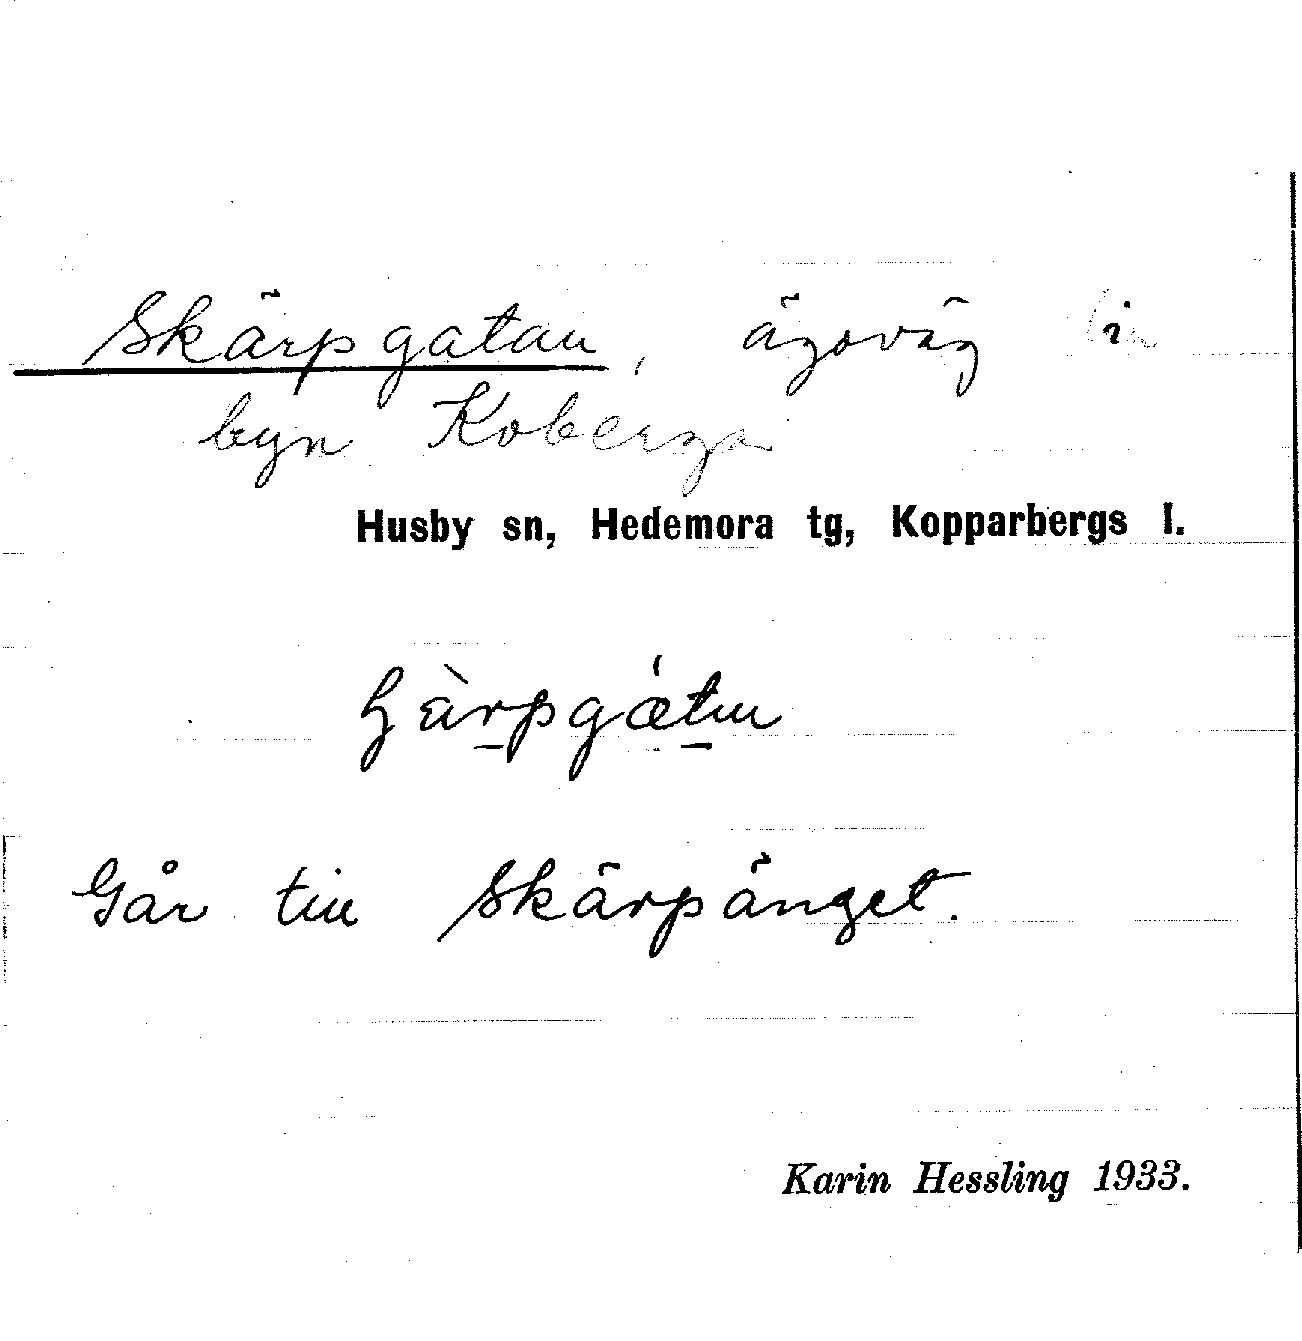 Skärpgatan, ägoväg i
byn Koberga
Husby sn, Hedemora tg, Kopparbergs l.
Går till Skärpänget.
Karin Hessling 1933.